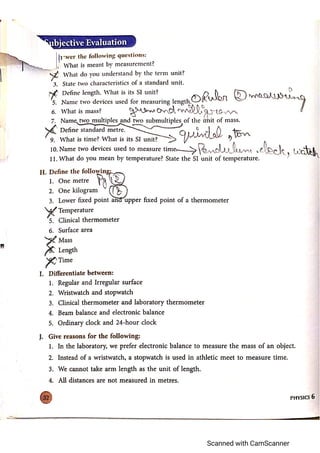 Subjective Evaluation
Answer the following questions:
1. What is meant by measurement?
2. What do you understand by the term unit?
3. State two characteristics of a standard unit.
4. Define length. What is its SI unit?
5. Name two devices used for measuring length. ① Ruler ② measuring
6. What is mass? gram and milligram
7. Name two multiples and two submultiples of the unit of mass.
8. Define standard metre. quintal, ton
9. What is time? What is its SI unit?
10. Name two devices used to measure time. Pendulum clock, watch
11. What do you mean by temperature? State the SI unit of temperature.
H. Define the following:
1. One metre
2. One kilogram
3. Lower fixed point and upper fixed point of a thermometer
4. Temperature
5. Clinical thermometer
6. Surface area
7. Mass
8. Length
9. Time
I. Differentiate between:
1. Regular and Irregular surface
2. Wristwatch and stopwatch
3. Clinical thermometer and laboratory thermometer
4. Beam balance and electronic balance
5. Ordinary clock and 24-hour clock
J. Give reasons for the following:
1. In the laboratory, we prefer electronic balance to measure the mass of an object.
2. Instead of a wristwatch, a stopwatch is used in athletic meet to measure time.
3. We cannot take arm length as the unit of length.
4. All distances are not measured in metres.
32
PHYSICS 6
Scanned with CamScanner